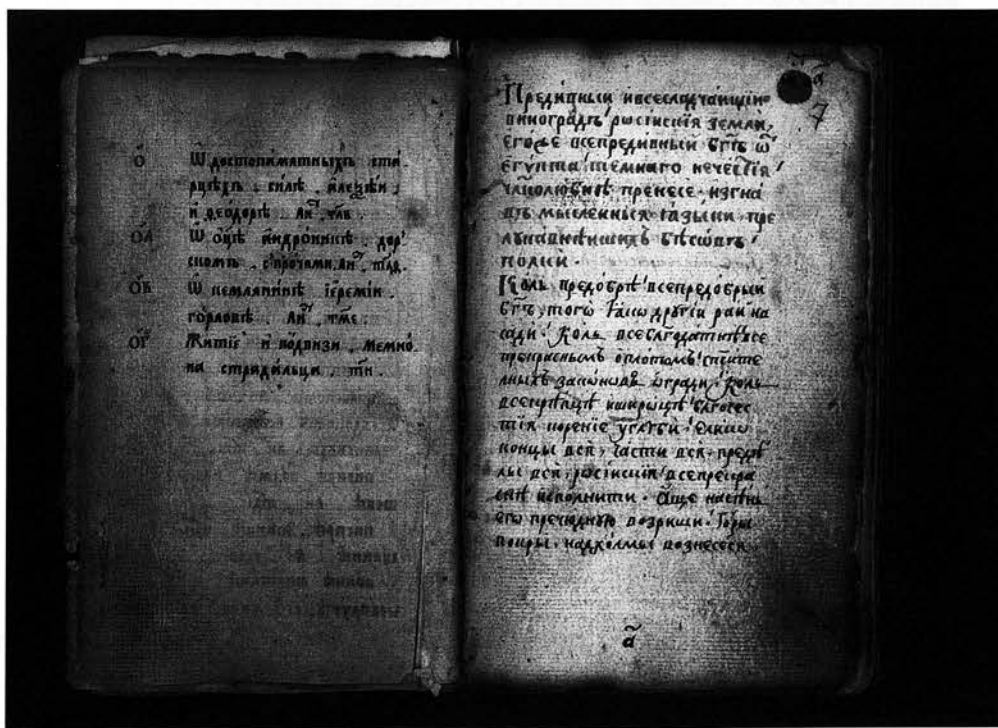 о҃ Ѡ достопамятныхъ ста
рцѣхъ, силѣ, алеѯѣи,
и ѳеодорѣ. ли
оа Ѡ оц҃ѣ андроникѣ, дор
скомъ, с прочими. ли
ов Ѡ землянинѣ іереміи
горловѣ. ли тме
ог Житіе и подвизи, мемно
на страдальца. тн
а҃
7
Предивныи и всесладчаишіи
виноградъ росїискія земли,
егоже всепредивныи бг҃ъ ѿ
егѵпта темнаго нечестїя
чл҃колюбнѣ пренесе. изгна
въ мысленныя языки. пре
лукавнѣишихъ бѣсовъ
полки.
Коль предобрѣ всепредобрыи
бг҃ъ, того яко другїи раи на
сади. Коль всеблг҃одатнѣ все
прекраснымъ оплотомъ спасите
лныхъ законовъ огради. Коль
всекрѣпцѣ и широцѣ благочес
тія кореніе углуби. Елико
концы вся, части вся, предѣ
лы вся, росїискія всепрекра
снѣ исполнити. Аще на сѣнь
его пречюдную возриши. Горы
покры. на холмы вознесеся.
а҃